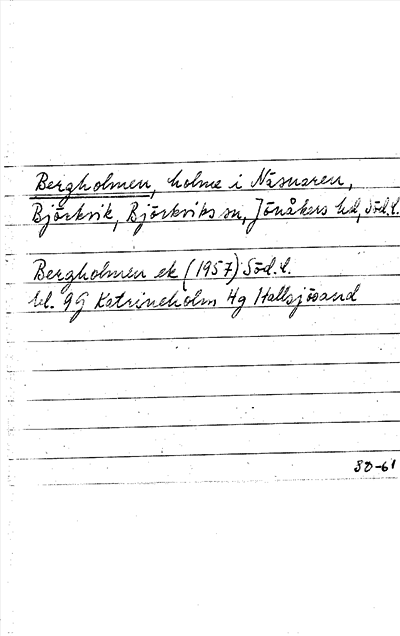 Bergholmen, holme i Näsnaren,
Björkvik, Björkviks sn, Jönåkers hd, Söd.l.
Bergholmen ek (1957) Söd.l.
bl. 9G Katrineholm 4g Hallsjösand
30-61